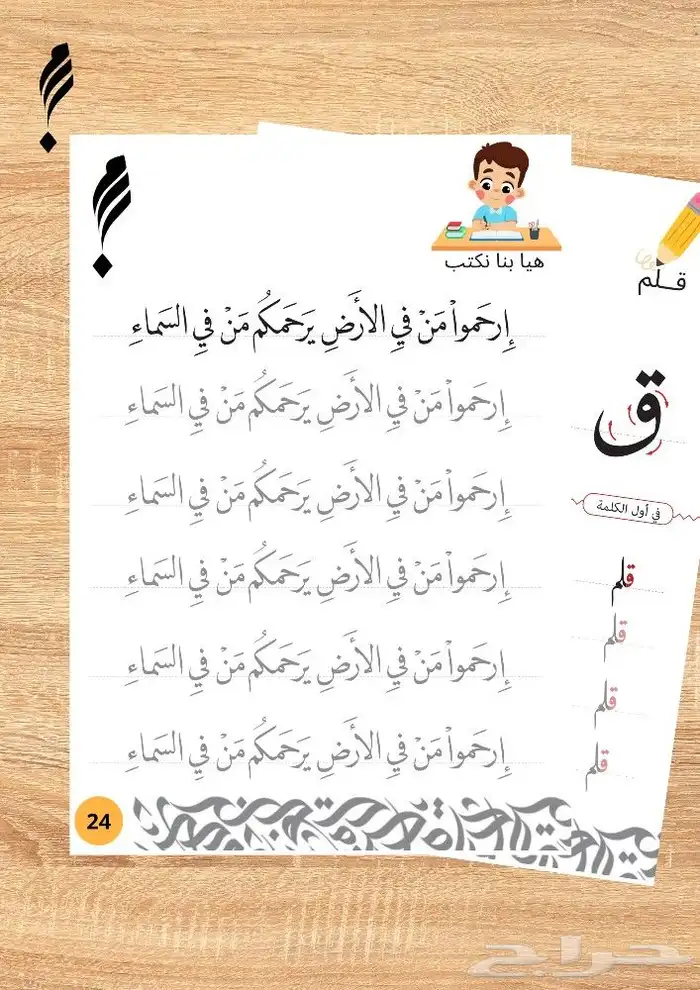 هيا بنا نكتب
إِرحَموا مَنْ فيِ الأَرَضِ يَرحَمكُم مَنْ فيِ السَماءِ
إِرحَموا مَنْ فيِ الأَرَضِ يَرحَمكُم مَنْ فيِ السَماءِ
إِرحَموا مَنْ فيِ الأَرَضِ يَرحَمكُم مَنْ فيِ السَماءِ
إِرحَموا مَنْ فيِ الأَرَضِ يَرحَمكُم مَنْ فيِ السَماءِ
إِرحَموا مَنْ فيِ الأَرَضِ يَرحَمكُم مَنْ فيِ السَماءِ
إِرحَموا مَنْ فيِ الأَرَضِ يَرحَمكُم مَنْ فيِ السَماءِ
24
قـلم
ق
في أول الكلمة
قلم
قلم
قلم
قلم
حراج